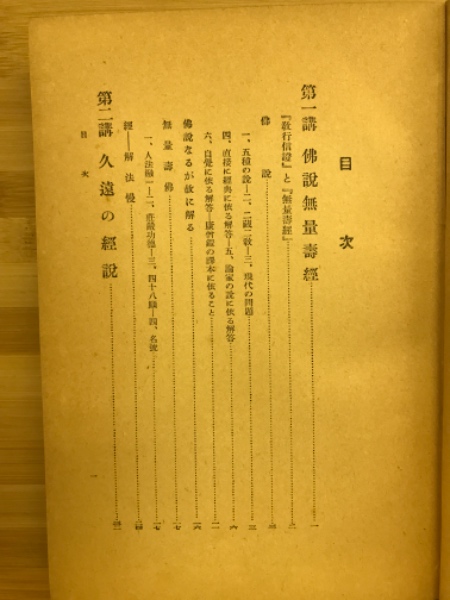 目次
第一講 佛說無量壽經 一
『敎行信證』と『無量壽經』 二
佛說 三
一、五種の說—二、二藏二敎—三、現代の問題 三
四、直接に經典に依る解答—五、論家の說に依る解答 六
六、自覺に依る解答—康僧鎧の譯本に依ること 一一
佛說なるが故に解る 一六
無量壽佛 一七
一、人法融—二、莊嚴功德—三、四十八願—四、名號 一七
經—解法慢
第二講 久遠の經說
目次
一